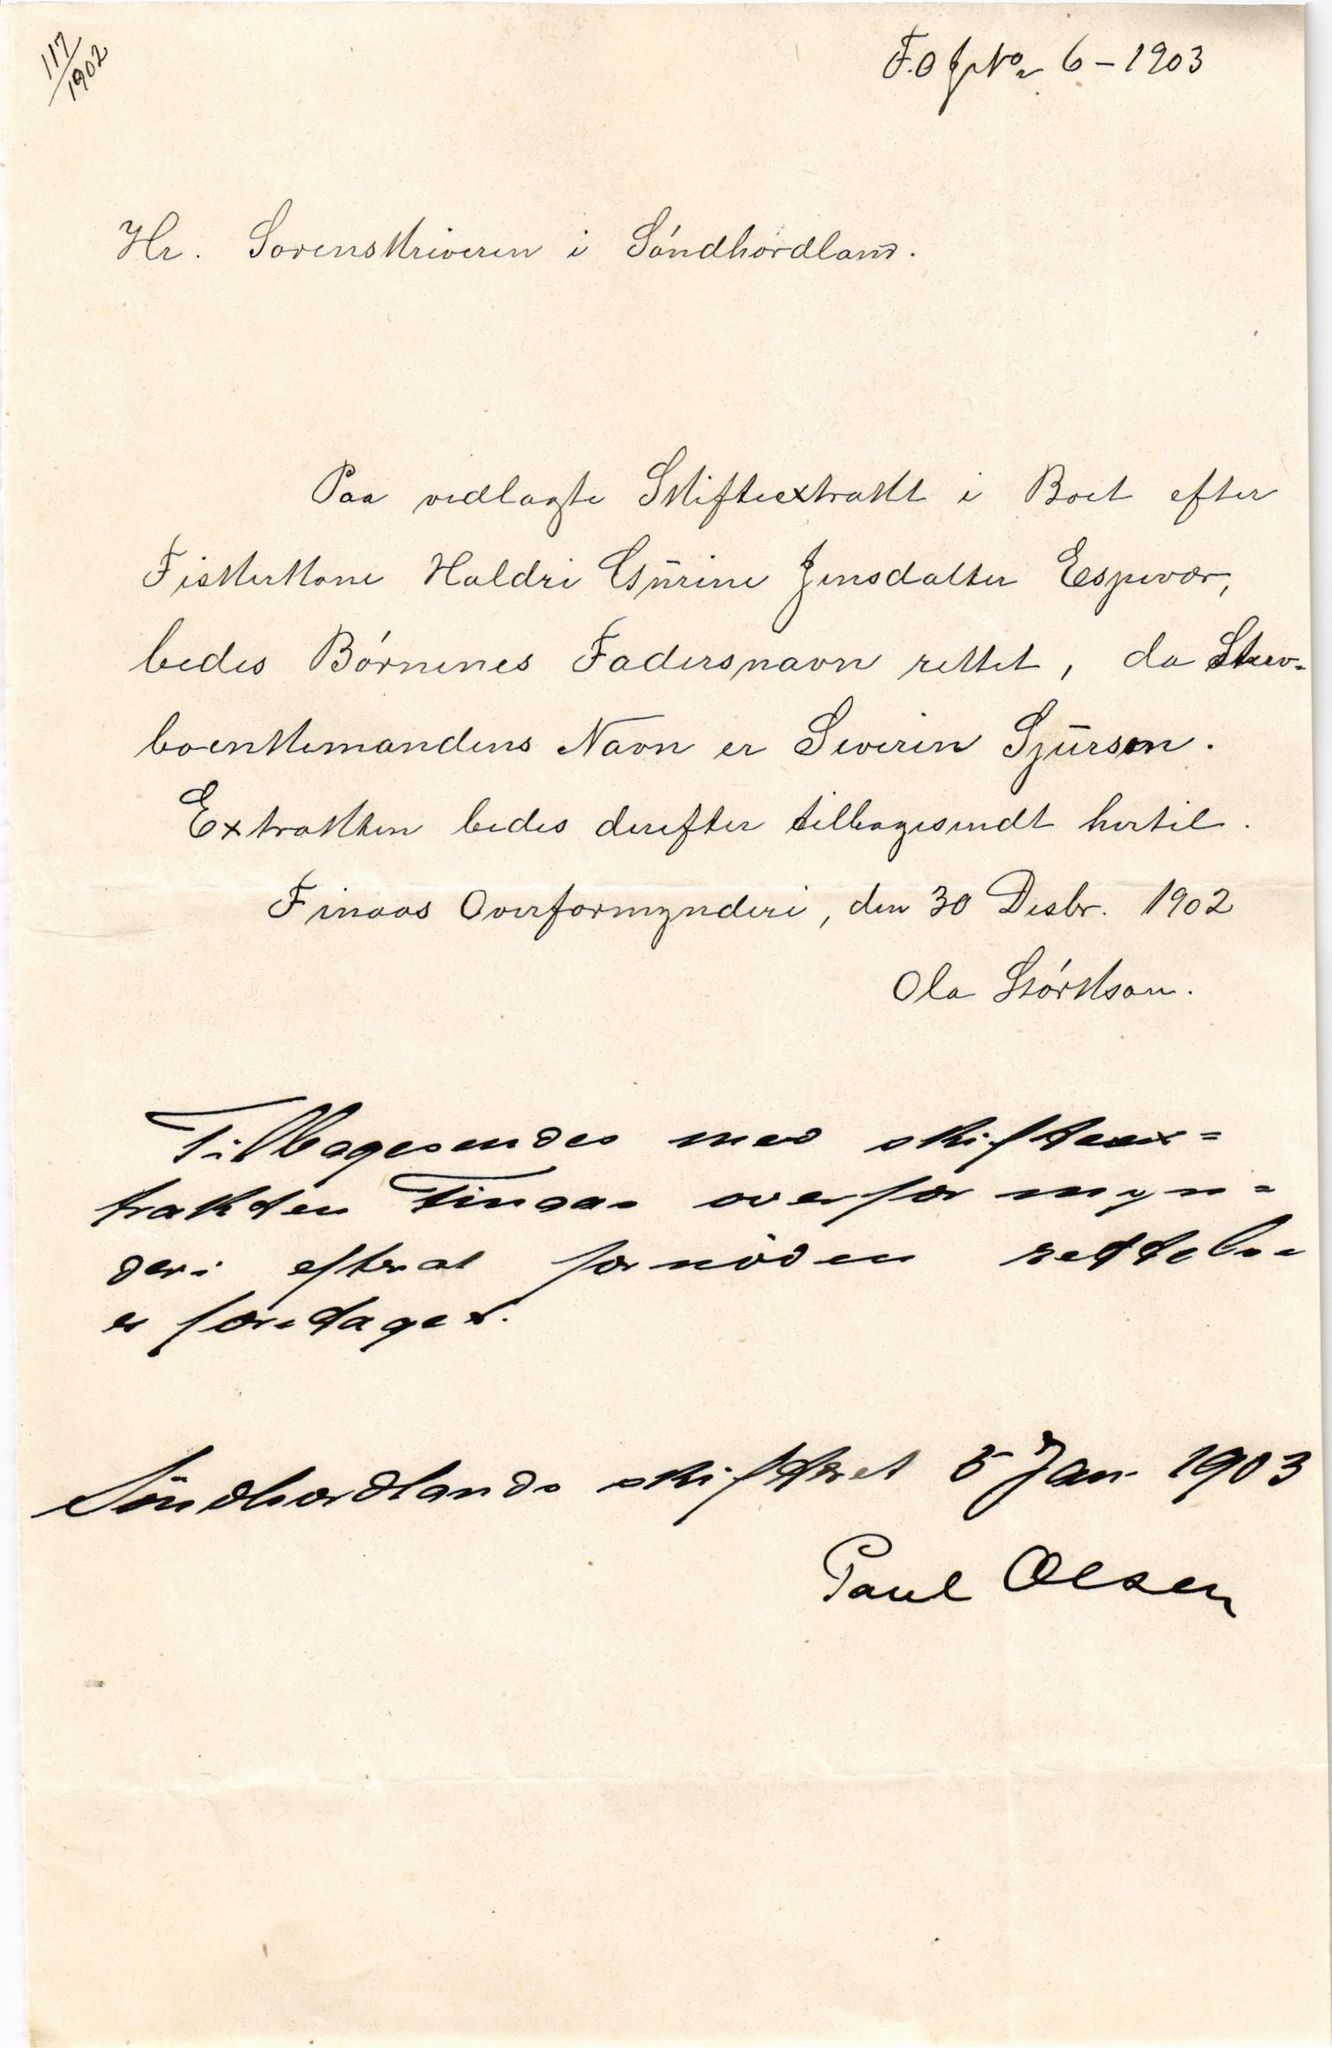 117/1902
F.O J No 6 – 1903
Hr. Sorenskriveren i Söndhordland.
Paa vedlagte Skifteextrakt i Boet efter
Fiskerkone Haldri Gürine Jensdatter Espevær,
bedes Börnenes Fadersnavn rettet, da Sterv-
boenkemandens Navn er Severin Sjürsen.
Extrakten bedes derefter tilbagesendt hertil.
Finaas Overformynderi, den 30 Desbr. 1902
Ola Störkson.
Tilbagesendes med skifteex-
trakten Finaas overformyn-
deri efterat fornöden rettelse
er foretaget.
Söndhordlands skifteret 5 Jan. 1903
Paul Olsen